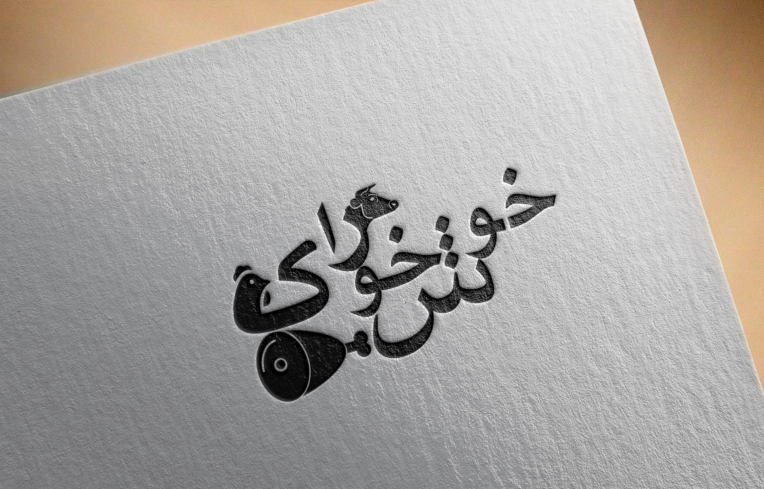 خوش خورای